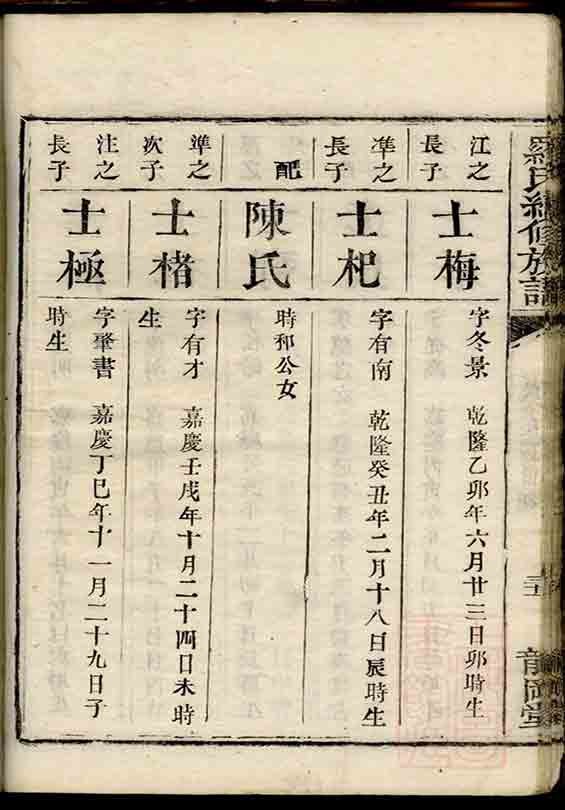 羅氏續修族譜
龍岡堂
江之
長子
士梅
字冬景 乾隆乙卯年六月廿三日卯時生
準之
長子
士杞
字有南 乾隆癸丑年二月十八日辰時生
配
陳氏
時和公女
準之
次子
士楮
字有才 嘉慶壬戌年十月二十四日未時
生
注之
長子
士極
字肇書 嘉慶丁巳年十一月二十九日子
時生